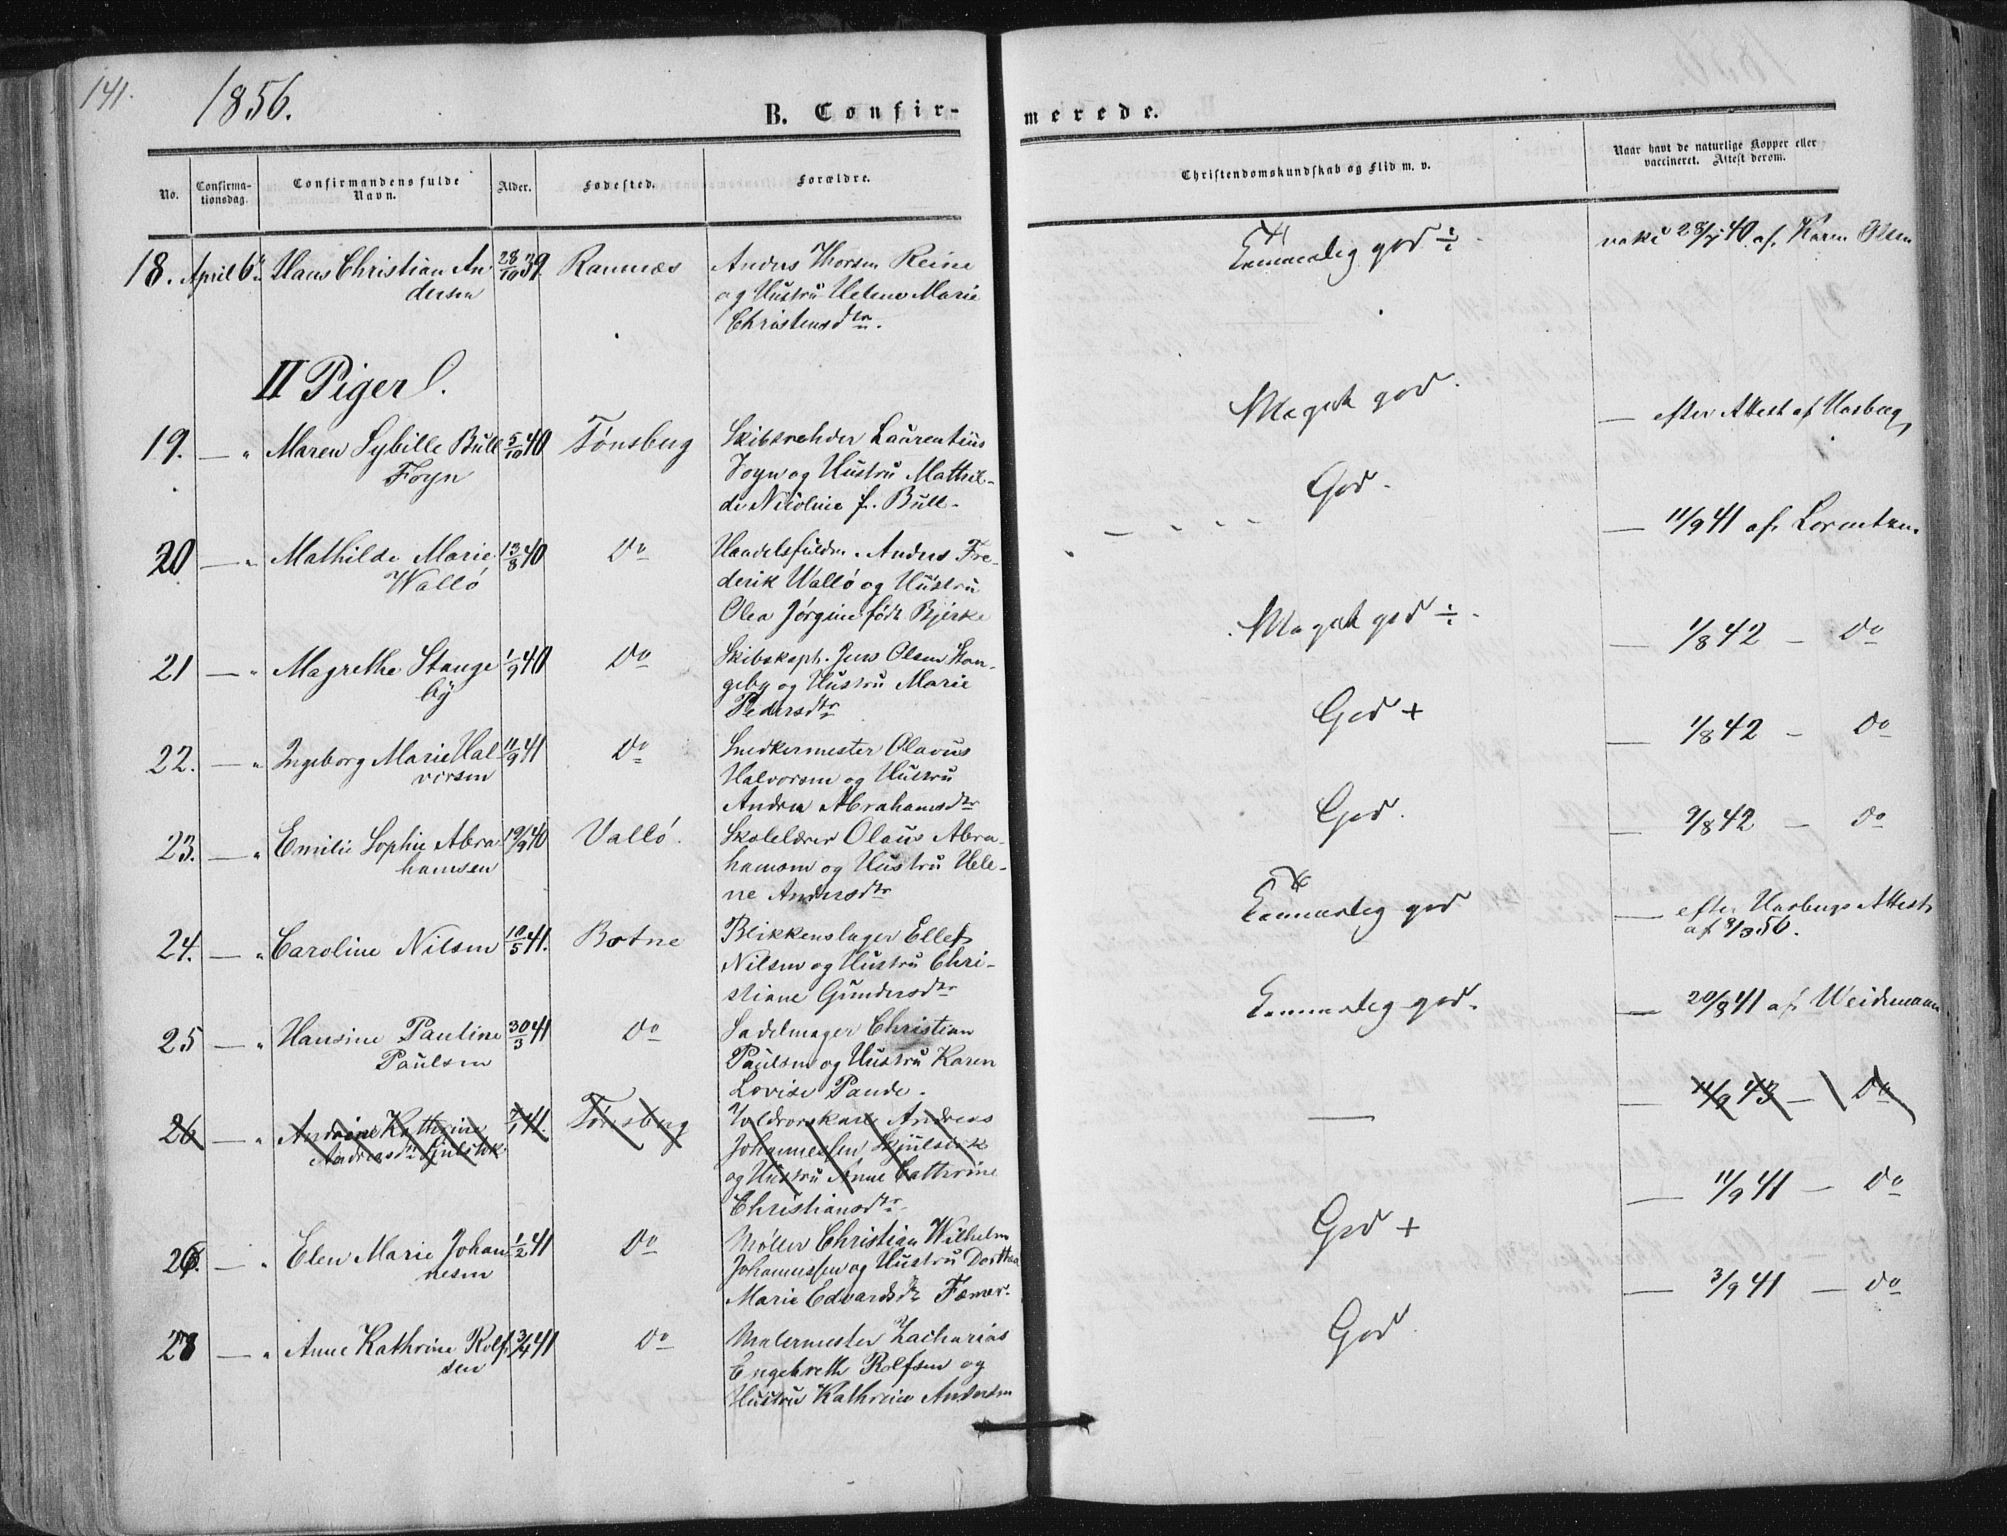 141.
1856.
B. Confir-
merede.
No.
Confirma-
tionsdag.
Confirmandens fulde
Navn.
Alder.
Fødested.
Forældre.
Christendomskundskab og Flid m. v.
Naar havt de naturlige Kopper eller
vaccineret. Attest derom.
18. April 6 Hans Christian An- 28/10 39. Ramnæs Anders Thorsen Reine
dersen og Hustru Helene Marie
Christensdtr.
god ÷
40 af Karen Olsen
II Piger.
19. — " Maren Sybille Bull 5/10 40 Tønsberg Skibsrheder Laurentius
Foyn Foyn og Hustru Mathil-
de Nicoline f. Bull.
Meget god.
— efter Attest af Hasberg
20 — " Mathilde Marie 13/8 40 Do Handelsfuldm. Anders Fre-
Wallø derik Wallø og Hustru
Olea Jørgine født Bjerke
God.
— 11/9 41 af Lorentzen
21 — " Magrethe Stange 1/9 40 Do Skibskapt. Jens Olsen Stan-
by geby og Hustru Marie
Pedersdtr
Meget god ÷
— 1/8 42 — Do
22. — " Ingeborg Marie Hal 11/9 41 Do Snedkermester Olavus
versen Halvorsen og Hustru
Andrea Abrahamsdtr
God +
— 1/8 42 — Do
23. — " Emilie Sophie Abra 19/9 40 Vallø. Skolelærer Olaus Abra-
hamsen hamsen og Hustru Hele-
ne Andersdtr
God.
— 9/8 42 — Do
24. — " Caroline Nilsen 10/5 41. Botne Blikkenslager Ellef
Nilsen og Hustru Chri-
stiane Gundersdtr
god
— efter Hasbergs Attest
af 9/3 56.
25 — " Hansine Pauline 30/3 41 Do Sadelmager Christian
Paulsen Paulsen og Hustru Karen
Lovise Pande.
god.
— 20/8 41 af Weidemann
26 — " Andrine Kathrine 41. Tønsberg Andreas
Andreasdtr Johannessen
og Hustru Anne Cathrine
Christiansdtr
— 43 — Do
26. — " Elen Marie Johan 1/2 41 Do Møller Christian Wilhelm
nesen Johannessen og Hustru Dorthea
Marie Edvardsdtr
God +
— 11/9 41 — Do
— " Anne Kathrine Rolf 3/4 41 Do Malermester Zacharias
sen Engebreth Rolfsen og
Hustru Kathrine Andersen
God.
— 3/9 41 — Do